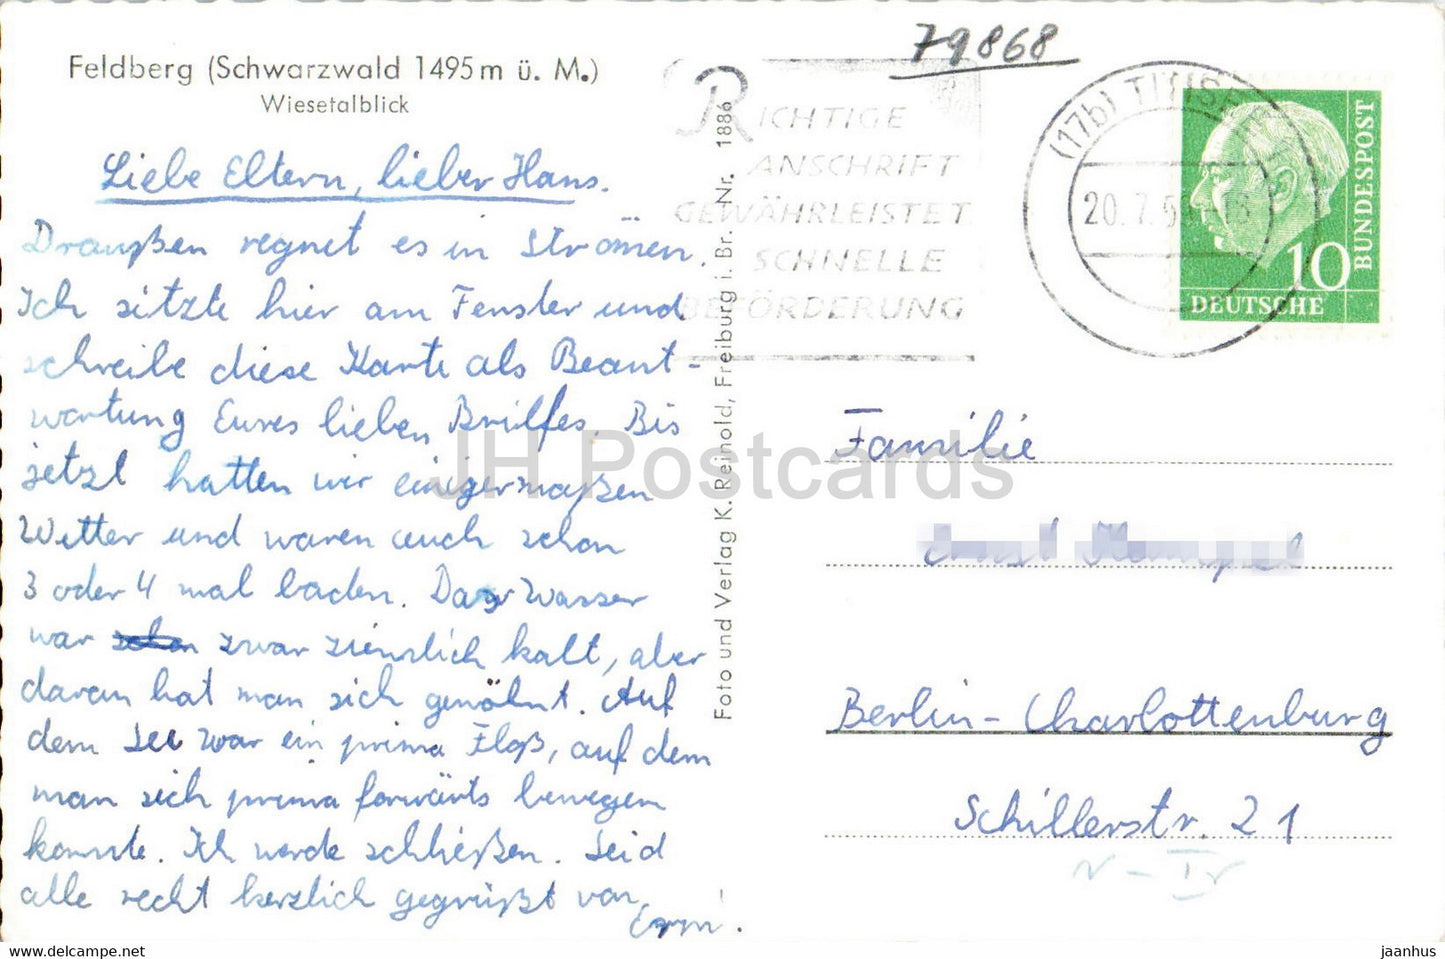 Feldberg (Schwarzwald 1495 m ü. M.)
Wiesetalblick
Liebe Eltern, lieber Hans.
Draußen regnet es in Strömen.
Ich sitzte hier am Fenster und
schreibe diese Karte als Beant-
wortung Eures lieben Briefes. Bis
jetzt hatten wir einigermaßen
Wetter und waren auch schon
3 oder 4 mal baden. Das Wasser
war zwar ziemlich kalt, aber
daran hat man sich gewöhnt. Auf
dem See war ein prima Floß, auf dem
man sich prima forwärts bewegen
konnte. Ich werde schließen. Seid
alle recht herzlich gegrüßt von
Foto und Verlag K. Reinold, Freiburg i. Br. - Nr. 1886
79868
RICHTIGE
ANSCHRIFT
GEWÄHRLEISTET
SCHNELLE
BEFÖRDERUNG
(17b) TITISEE
20. 7. 5
10
DEUTSCHE
BUNDESPOST
Familie
Berlin-Charlottenburg
Schillerstr. 21
JH Postcards
https://jh-postcards.myshopify.com
jaanhus